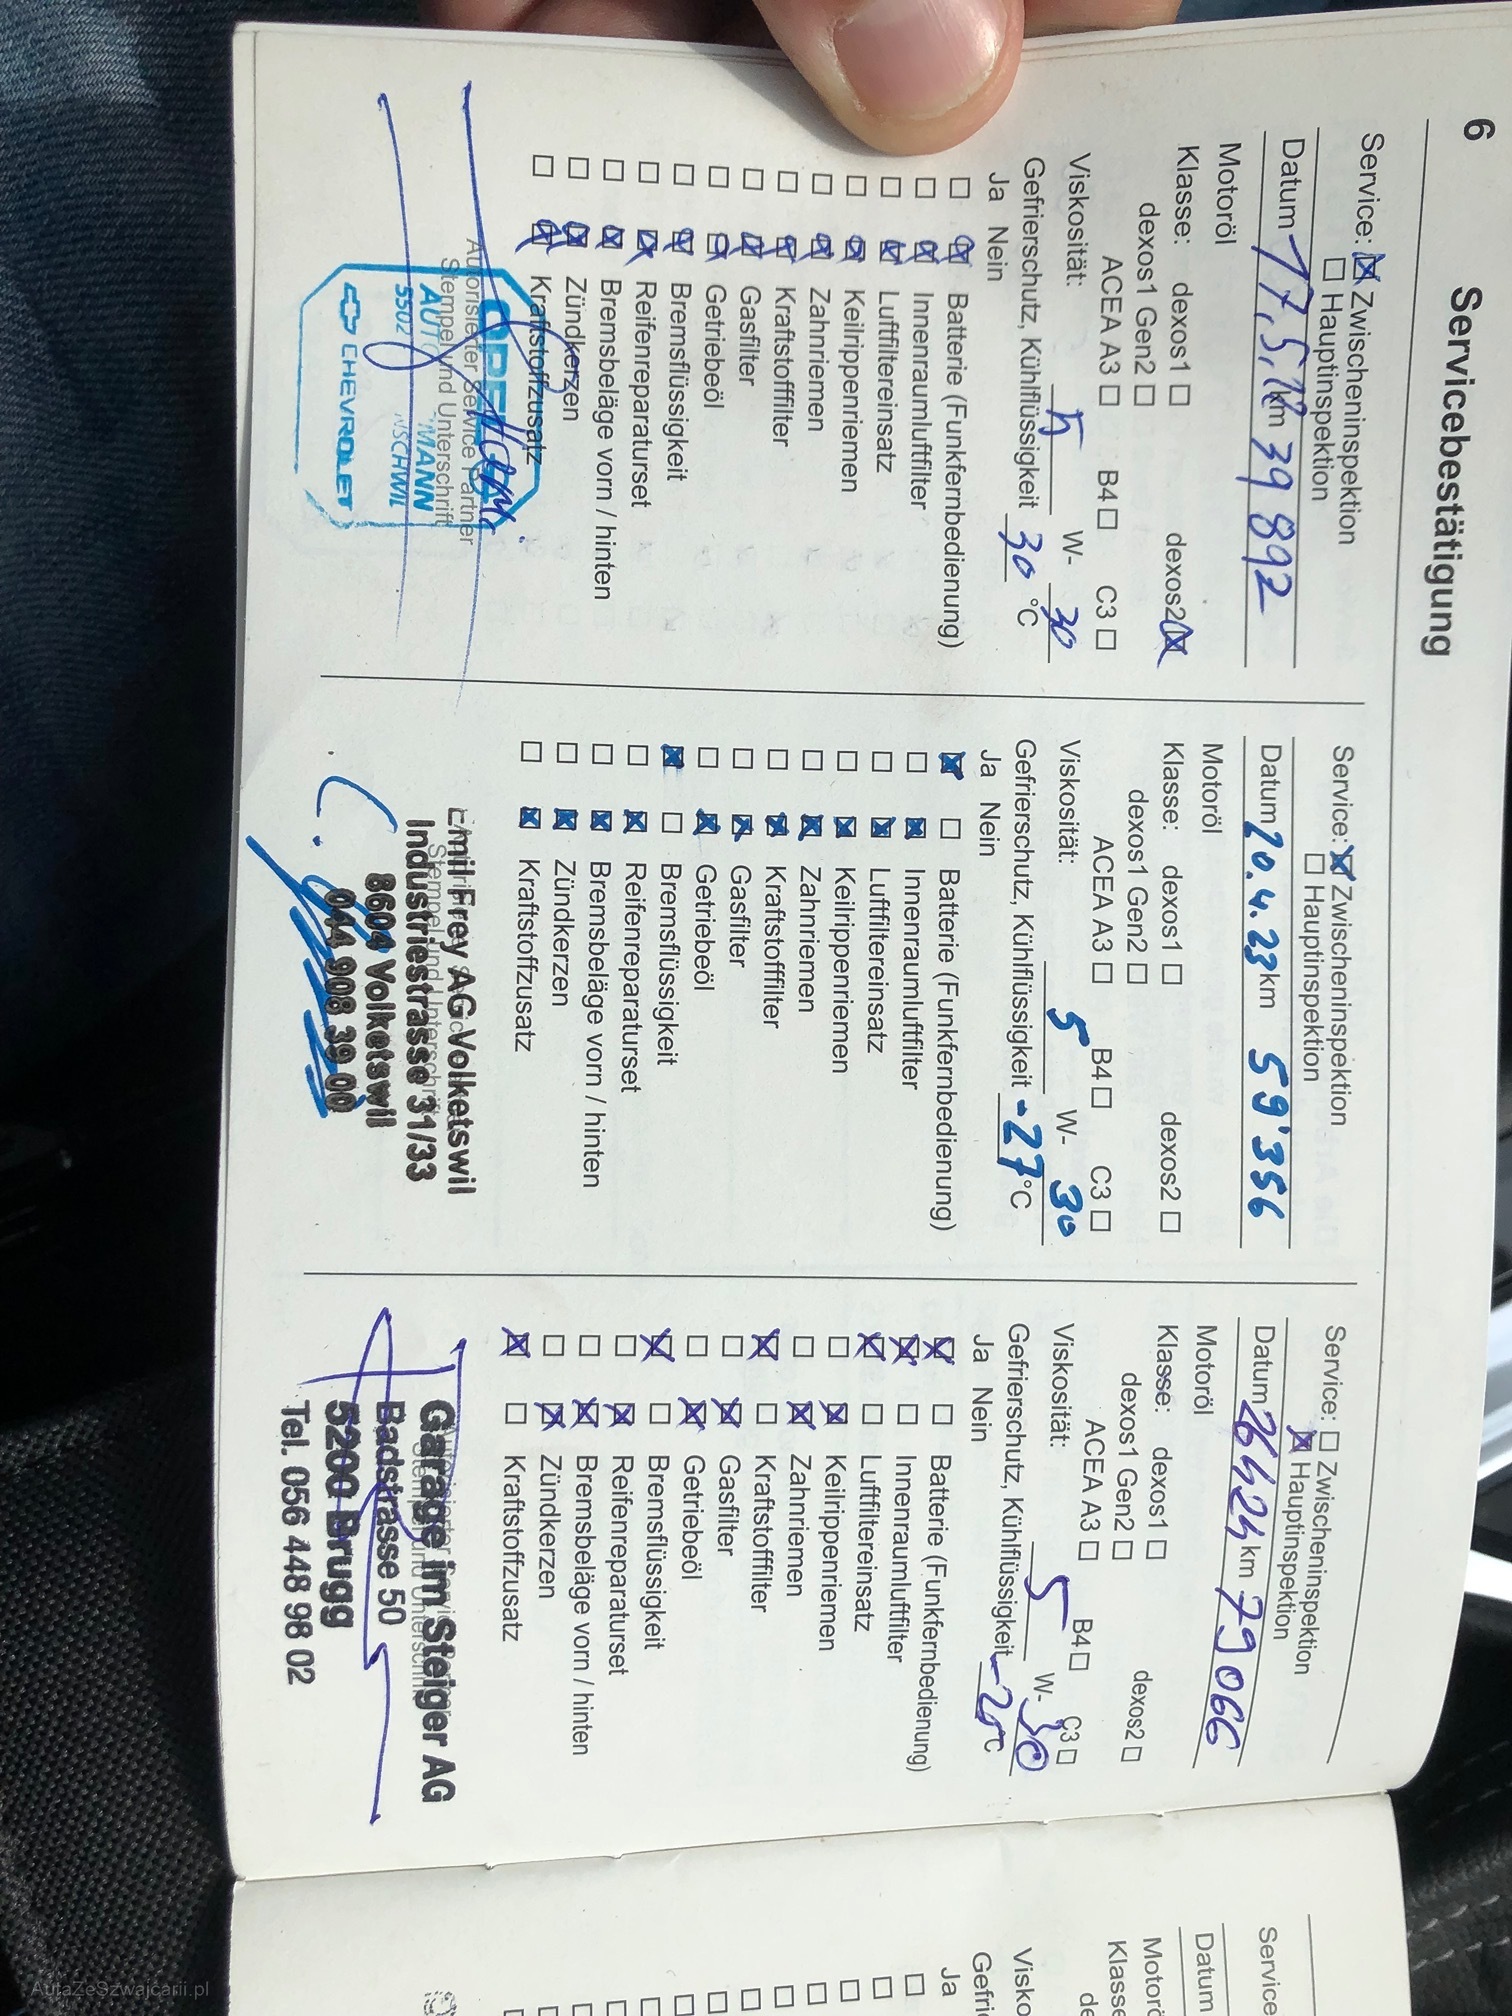 6
Servicebestätigung
Service: ☒ Zwischeninspektion
☐ Hauptinspektion
Datum 17.5. km 39 892
Motoröl
Klasse: dexos1 ☐ dexos2 ☒
dexos1 Gen2 ☐
ACEA A3 ☐ B4 ☐ C3 ☐
Viskosität: 5 W- 30
Gefrierschutz, Kühlflüssigkeit 30 °C
Ja Nein
☐ ☒ Batterie (Funkfernbedienung)
☐ ☒ Innenraumluftfilter
☐ ☒ Luftfiltereinsatz
☐ ☒ Keilrippenriemen
☐ ☒ Zahnriemen
☐ ☒ Kraftstofffilter
☐ ☒ Gasfilter
☐ ☒ Getriebeöl
☐ ☒ Bremsflüssigkeit
☐ ☒ Reifenreparaturset
☐ ☒ Bremsbeläge vorn / hinten
☐ ☒ Zündkerzen
☐ ☒ Kraftstoffzusatz
Autorisierter Service Partner
Stempel und Unterschrift
OPEL
MANN
5502
CHEVROLET
Service: ☒ Zwischeninspektion
☐ Hauptinspektion
Datum 20.4.23 km 59'356
Motoröl
Klasse: dexos1 ☐ dexos2 ☐
dexos1 Gen2 ☐
ACEA A3 ☐ B4 ☐ C3 ☐
Viskosität: 5 W- 30
Gefrierschutz, Kühlflüssigkeit -27 °C
Ja Nein
☒ ☐ Batterie (Funkfernbedienung)
☐ ☒ Innenraumluftfilter
☐ ☒ Luftfiltereinsatz
☐ ☒ Keilrippenriemen
☐ ☒ Zahnriemen
☐ ☒ Kraftstofffilter
☐ ☒ Gasfilter
☐ ☒ Getriebeöl
☒ ☐ Bremsflüssigkeit
☐ ☒ Reifenreparaturset
☐ ☒ Bremsbeläge vorn / hinten
☐ ☒ Zündkerzen
☐ ☒ Kraftstoffzusatz
Emil Frey AG Volketswil
Industriestrasse 31/33
8604 Volketswil
044 908 39 00
Service: ☐ Zwischeninspektion
☒ Hauptinspektion
Datum 26 4 24 km 79 066
Motoröl
Klasse: dexos1 ☐ dexos2 ☐
dexos1 Gen2 ☐
ACEA A3 ☐ B4 ☐ C3 ☐
Viskosität: 5 W- 30
Gefrierschutz, Kühlflüssigkeit °C
Ja Nein
☒ ☐ Batterie (Funkfernbedienung)
☒ ☐ Innenraumluftfilter
☒ ☐ Luftfiltereinsatz
☐ ☒ Keilrippenriemen
☐ ☒ Zahnriemen
☒ ☐ Kraftstofffilter
☐ ☒ Gasfilter
☐ ☒ Getriebeöl
☒ ☐ Bremsflüssigkeit
☐ ☒ Reifenreparaturset
☐ ☒ Bremsbeläge vorn / hinten
☐ ☒ Zündkerzen
☒ ☐ Kraftstoffzusatz
Garage im Steiger AG
Badstrasse 50
5200 Brugg
Tel. 056 448 98 02
Service
Datum
Ja
AutaZeSzwajcarii.pl